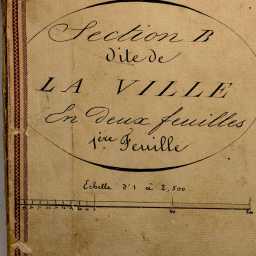 Section B
dite de
LA VILLE
En deux feuilles
1ère Feuille
Echelle d'1 à 2,500